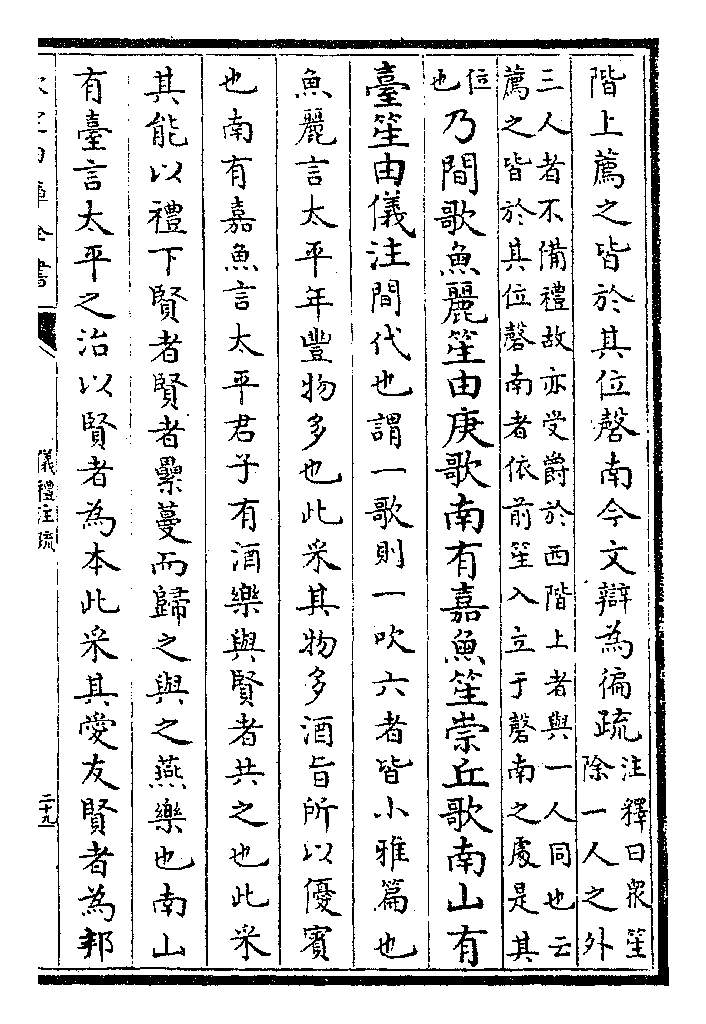 階上薦之皆於其位磬南今文辯為徧疏
注釋曰衆笙
除一人之外
三人者不備禮故亦受爵於西階上者與一人同也云
薦之皆於其位磬南者依前笙入立于磬南之處是其
位
也
乃間歌魚麗笙由庚歌南有嘉魚笙崇丘歌南山有
臺笙由儀注間代也謂一歌則一吹六者皆小雅篇也
魚麗言太平年豐物多也此采其物多酒旨所以優賓
也南有嘉魚言太平君子有酒樂與賢者共之也此采
其能以禮下賢者賢者纍蔓而歸之與之燕樂也南山
有臺言太平之治以賢者為本此采其愛友賢者為邦
儀禮注疏
二十九